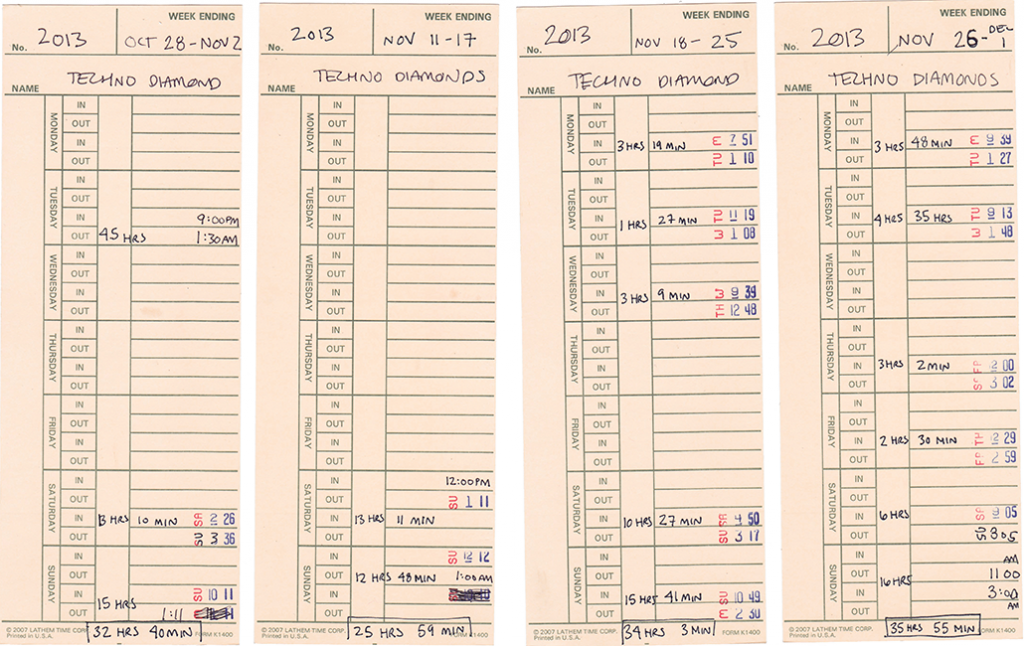 WEEK ENDING
No. 2013 OCT 28-NOV 2
TECHNO DIAMOND
NAME
MONDAY
IN
OUT
IN
OUT
TUESDAY
IN
OUT
IN 9:00PM
OUT 45 HRS 1:30AM
WEDNESDAY
IN
OUT
IN
OUT
THURSDAY
IN
OUT
IN
OUT
FRIDAY
IN
OUT
IN
OUT
SATURDAY
IN
OUT
IN 13 HRS 10 MIN SA 2 26
OUT SU 3 36
SUNDAY
IN
OUT
IN 15 HRS SU 10 11
OUT 1:11
© 2007 LATHEM TIME CORP. FORM K1400
Printed in U.S.A.
32 HRS 40 MIN
WEEK ENDING
No. 2013 NOV 11-17
TECHNO DIAMONDS
NAME
MONDAY
IN
OUT
IN
OUT
TUESDAY
IN
OUT
IN
OUT
WEDNESDAY
IN
OUT
IN
OUT
THURSDAY
IN
OUT
IN
OUT
FRIDAY
IN
OUT
IN
OUT
SATURDAY
IN 12:00PM
OUT SU 1 11
IN 13 HRS 11 MIN
OUT
SUNDAY
IN SU 12 12
OUT 12 HRS 48 MIN 1:00AM
IN
OUT
© 2007 LATHEM TIME CORP. K1400
Printed in U.S.A.
25 HRS 59 MIN
WEEK ENDING
No. 2013 NOV 18-25
TECHNO DIAMOND
NAME
MONDAY
IN
OUT
IN 3 HRS 19 MIN M 7 51
OUT TU 1 10
TUESDAY
IN
OUT
IN 1 HRS 27 MIN TU 11 19
OUT W 1 08
WEDNESDAY
IN
OUT
IN 3 HRS 9 MIN W 9 39
OUT TH 12 48
THURSDAY
IN
OUT
IN
OUT
FRIDAY
IN
OUT
IN
OUT
SATURDAY
IN
OUT
IN 10 HRS 27 MIN SA 4 50
OUT SU 3 17
SUNDAY
IN
OUT
IN 15 HRS 41 MIN SU 10 49
OUT M 2 30
© 2007 LATHEM TIME CORP. FORM K1400
Printed in U.S.A.
34 HRS 3 MIN
WEEK ENDING
No. 2013 NOV 26-DEC 1
TECHNO DIAMONDS
NAME
MONDAY
IN
OUT
IN 3 HRS 48 MIN M 9 39
OUT TU 1 27
TUESDAY
IN
OUT
IN 4 HRS 35 HRS TU 9 13
OUT W 1 48
WEDNESDAY
IN
OUT
IN
OUT
THURSDAY
IN
OUT
IN 3 HRS 2 MIN 00
OUT 3 02
FRIDAY
IN
OUT
IN 2 HRS 30 MIN TH 29
OUT FR 2 59
SATURDAY
IN
OUT
IN 6 HRS SA 9 05
OUT 805
SUNDAY
IN AM
OUT 16 HRS 11 00
IN 3:00
OUT AM
© 2007 LATHEM TIME CORP. FORM K1400
Printed in U.S.A.
35 HRS 55 MIN